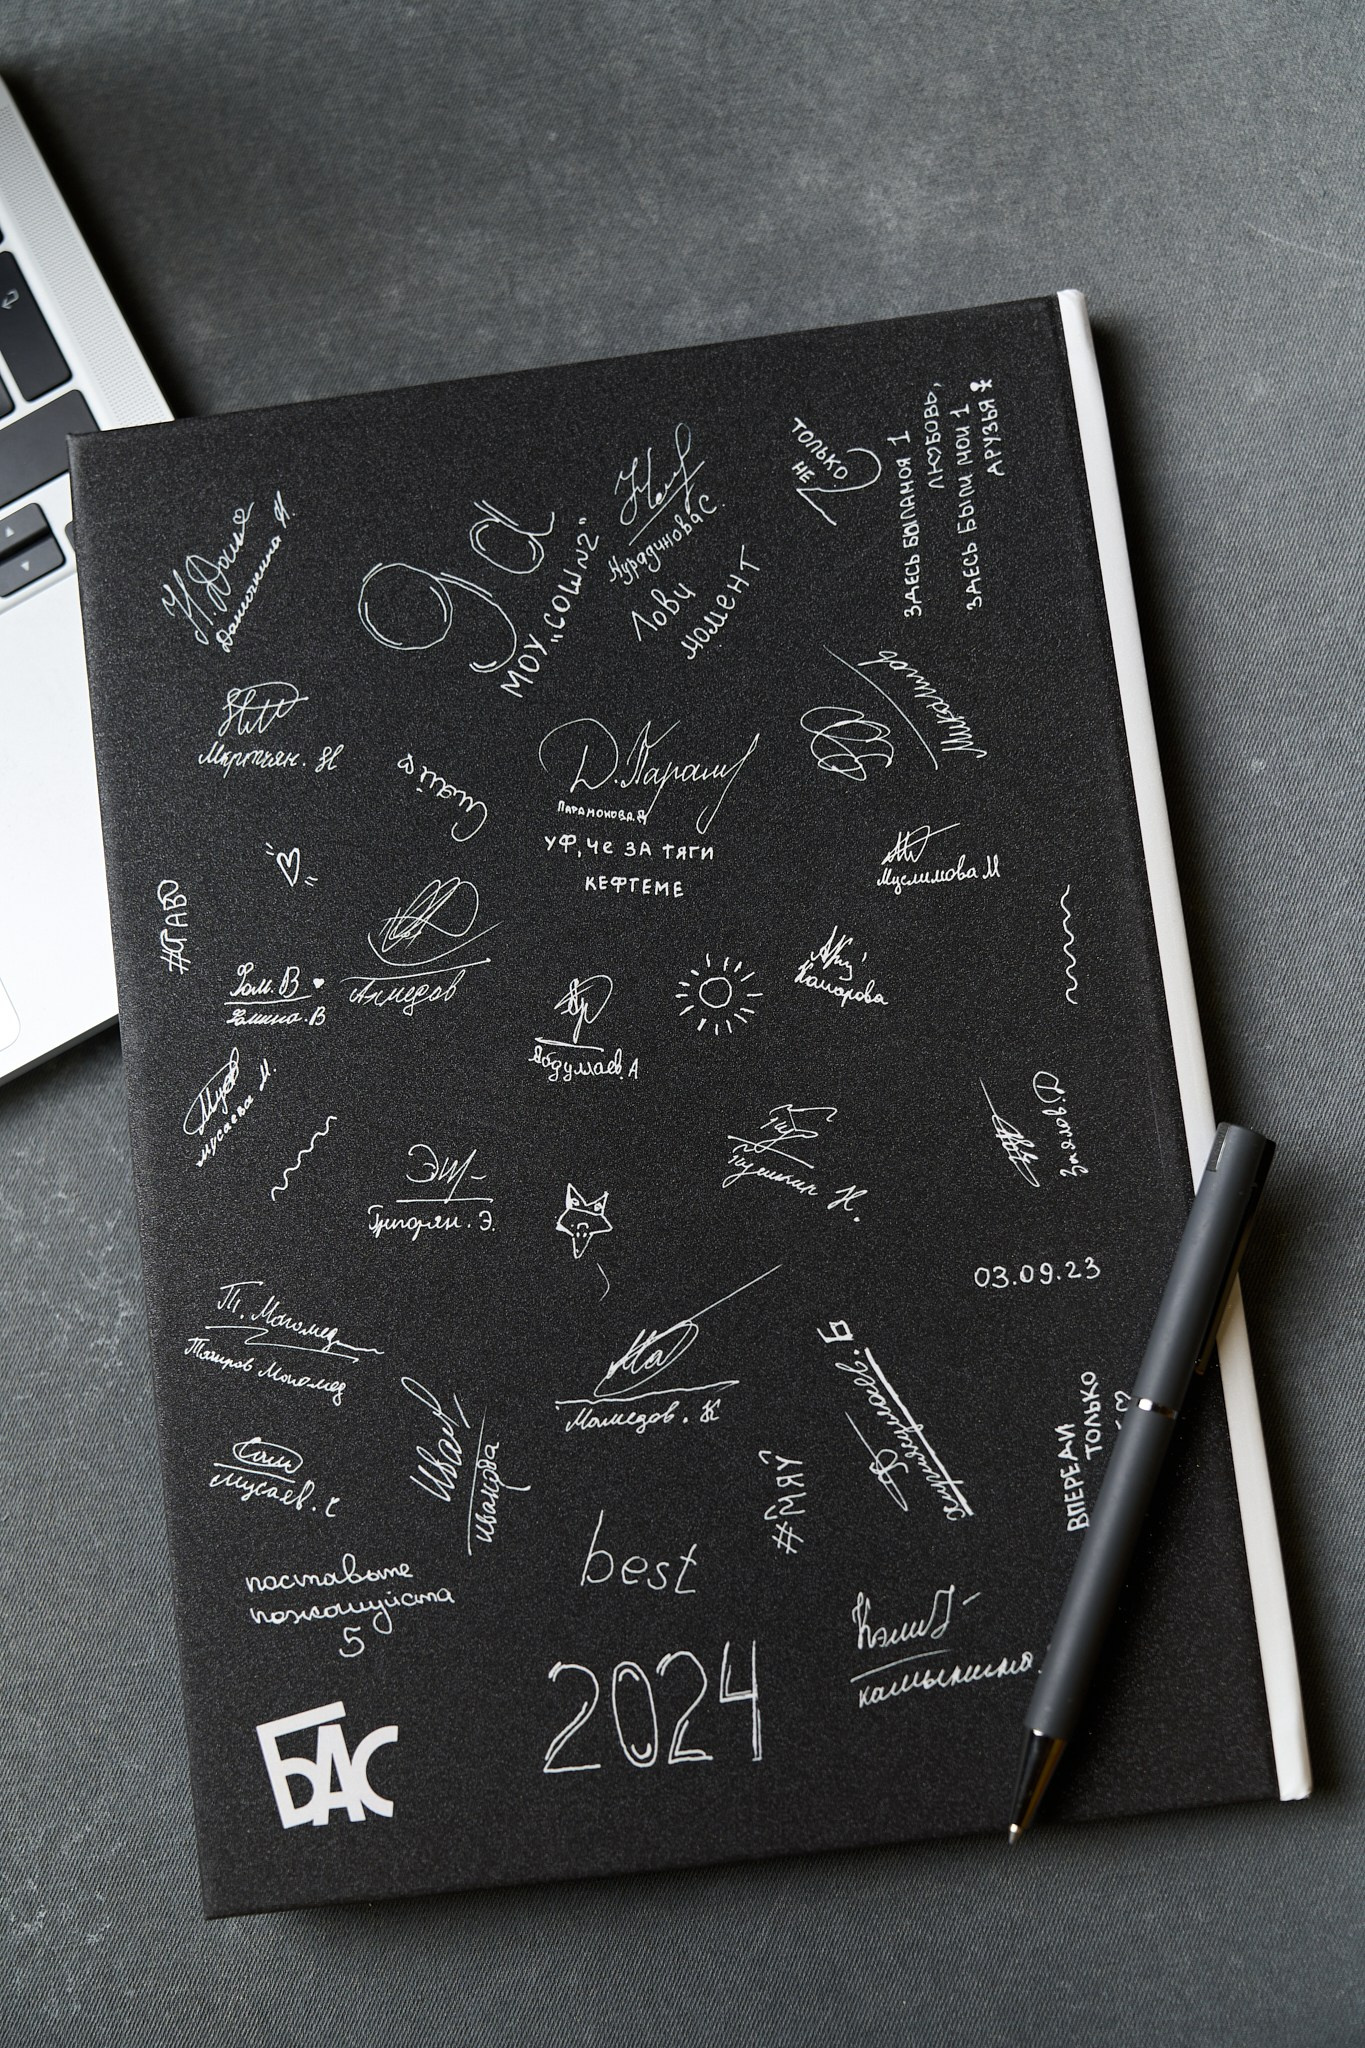 Н. Даша
Данькина Н.
9 а
МОУ „СОШ №2"
Нурадинова С.
Лови
момент
ТОЛЬКО
НЕ
2
ЗДЕСЬ БЫЛА МОЯ 1
ЛЮБОВЬ,
ЗДЕСЬ БЫЛИ МОИ 1
ДРУЗЬЯ
Мкртчян. Н
Д. Парам
ПАРАМОНОВА.Д
УФ, ЧЕ ЗА ТЯГИ
КЕФТЕМЕ
Муслимова М
Фом. В
Фомина. В
Ахмедов
Абдуллаев. А
Комарова
Мусаева М.
ЭГ
Григорян. Э.
Пушкин Н.
Заялов. Д
03.09.23
Т. Могомед
Тагиров Могомед
Мамедов. К
Мусаев.
Иван
Иванова
#МЯУ
ВПЕРЕДИ
ТОЛЬКО
поставьте
пожалуйста
5
best
2024
камышина.
БАС